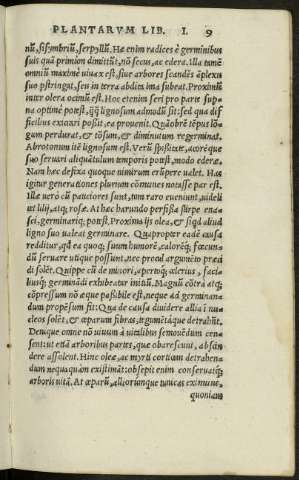 PLANTARVM LIB. I. 9
nũ, sisymbriũ, serpyllũ. Hæ enim radices è germinibus
suis quã primum dimittũt, nõ secus, ac edera. Illa tumẽ
omniũ maximè uiuax est, siue arbores scandẽs ẽplexu
suo pstringat, seu in terra abdita ima subeat. Proximũ
inter olera ocimũ est. Hoc etenim seri pro parte sup-
na optimè potest, qq̃ lignosum admodũ sit: sed qua dif
ficilius extaxi possit, ea prouenit. Quãobrẽ tẽpus lõ-
gum perdurat, & tõsum, & diminutum regerminat.
Abrotonum itẽ lignosum est. Verũ spissitate, acorẽque
suo seruari aliquãtulum temporis potest, modo ederæ.
Nam hæc defixa quoque nimirum erũpere ualet. Hæ
igitur generationes plurium cõmunes notasse par est.
Illæ uerò cũ pauciores sunt, tum raro eueniunt, uideli
ut lilij, atq; rosæ. At hæc harundo perfissa stirpe ena-
sci, germinariq; potest. Proxima ijs olea, & siqd aliud
ligno suo ualeat germinare. Quapropter eadẽ causa
redditur, qd ea quoq; suum humorẽ, calorẽq; fœcun
dũ seruare utique possunt. nec proinde argumẽto præci
di solẽt. Quippe cũ de minori, apertiq; cælerius, facia
liusq; germinãdi exhibeatur initiũ. Magnũ cõtra atq;
cõpressum nõ æque passibile est, neque ad germinan
dum propensum fit: Qua de causa diuidere allia i nu
cleos solẽt, & cæparum fibras, tegumẽtáque detrahũt.
Denique omne nõ uiuum à uitalibus semouẽdum cen
sent: ut etiã arboribus partes, quæ obarescunt, abscin
dere assolent. Hinc oleæ, ac myrti corticem detrahen
dum nequaquàm existimãt: obsepit enim conseruatq;
arboris uitã. At cæparũ, alliorúmque tunicas eximunt,
quoniam